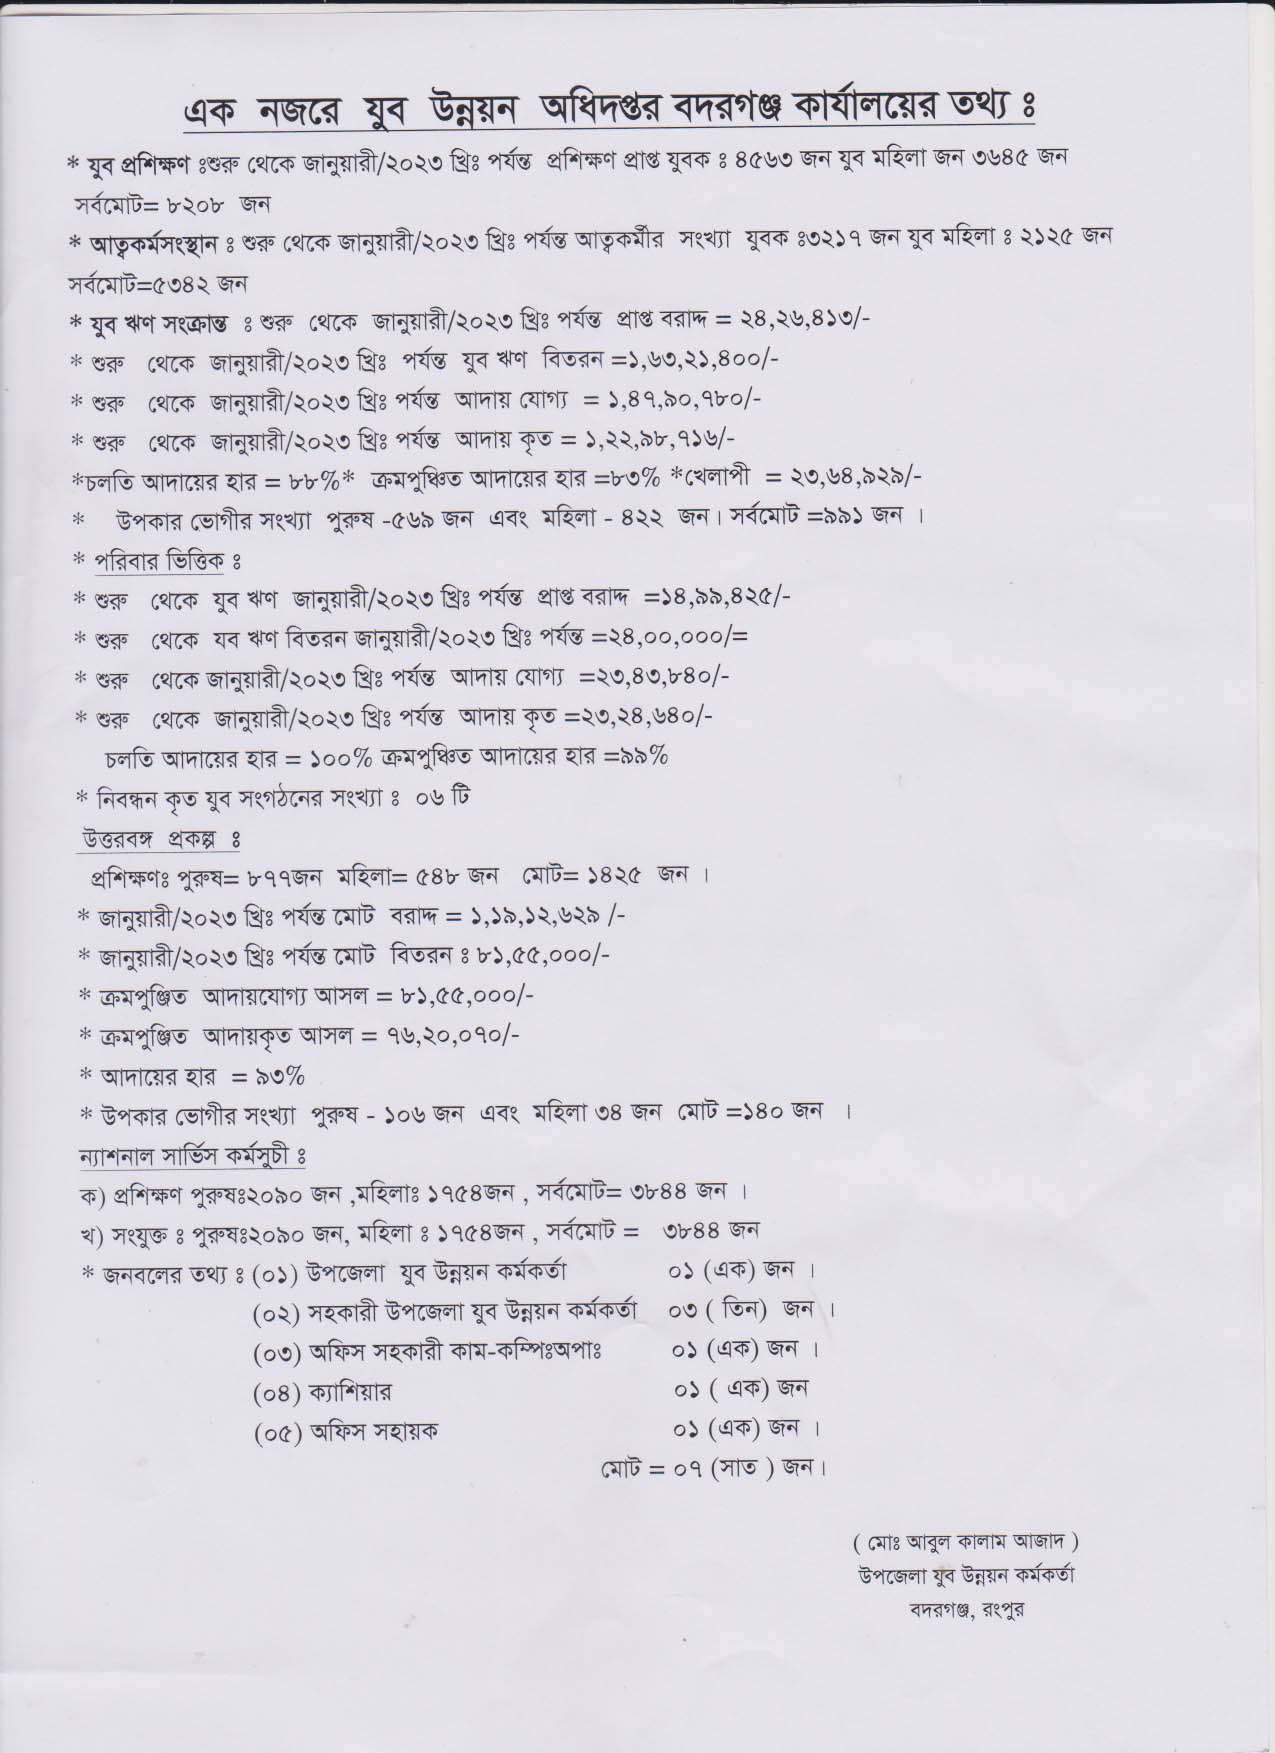 এক নজরে যুব উন্নয়ন অধিদপ্তর বদরগঞ্জ কার্যালয়ের তথ্য ঃ
* যুব প্রশিক্ষণ ঃশুরু থেকে জানুয়ারী/২০২৩ খ্রিঃ পর্যন্ত প্রশিক্ষণ প্রাপ্ত যুবক ঃ ৪৫৬৩ জন যুব মহিলা জন ৩৬৪৫ জন
সর্বমোট= ৮২০৮ জন
* আত্বকর্মসংস্থান ঃ শুরু থেকে জানুয়ারী/২০২৩ খ্রিঃ পর্যন্ত আত্বকর্মীর সংখ্যা যুবক ঃ৩২১৭ জন যুব মহিলা ঃ ২১২৫ জন
সর্বমোট=৫৩৪২ জন
* যুব ঋণ সংক্রান্ত ঃ শুরু থেকে জানুয়ারী/২০২৩ খ্রিঃ পর্যন্ত প্রাপ্ত বরাদ্দ = ২৪,২৬,৪১৩/-
* শুরু থেকে জানুয়ারী/২০২৩ খ্রিঃ পর্যন্ত যুব ঋণ বিতরন =১,৬৩,২১,৪০০/-
* শুরু থেকে জানুয়ারী/২০২৩ খ্রিঃ পর্যন্ত আদায় যোগ্য = ১,৪৭,৯০,৭৮০/-
* শুরু থেকে জানুয়ারী/২০২৩ খ্রিঃ পর্যন্ত আদায় কৃত = ১,২২,৯৮,৭১৬/-
*চলতি আদায়ের হার = ৮৮%* ক্রমপুঞ্চিত আদায়ের হার =৮৩% *খেলাপী = ২৩,৬৪,৯২৯/-
* উপকার ভোগীর সংখ্যা পুরুষ -৫৬৯ জন এবং মহিলা - ৪২২ জন। সর্বমোট =৯৯১ জন ।
* পরিবার ভিত্তিক ঃ
* শুরু থেকে যুব ঋণ জানুয়ারী/২০২৩ খ্রিঃ পর্যন্ত প্রাপ্ত বরাদ্দ =১৪,৯৯,৪২৫/-
* শুরু থেকে যব ঋণ বিতরন জানুয়ারী/২০২৩ খ্রিঃ পর্যন্ত =২৪,০০,০০০/=
* শুরু থেকে জানুয়ারী/২০২৩ খ্রিঃ পর্যন্ত আদায় যোগ্য =২৩,৪৩,৮৪০/-
* শুরু থেকে জানুয়ারী/২০২৩ খ্রিঃ পর্যন্ত আদায় কৃত =২৩,২৪,৬৪০/-
চলতি আদায়ের হার = ১০০% ক্রমপুঞ্চিত আদায়ের হার =৯৯%
* নিবন্ধন কৃত যুব সংগঠনের সংখ্যা ঃ ০৬ টি
উত্তরবঙ্গ প্রকল্প ঃ
প্রশিক্ষণঃ পুরুষ= ৮৭৭জন মহিলা= ৫৪৮ জন মোট= ১৪২৫ জন ।
* জানুয়ারী/২০২৩ খ্রিঃ পর্যন্ত মোট বরাদ্দ = ১,১৯,১২,৬২৯ /-
* জানুয়ারী/২০২৩ খ্রিঃ পর্যন্ত মোট বিতরন ঃ ৮১,৫৫,০০০/-
* ক্রমপুঞ্জিত আদায়যোগ্য আসল = ৮১,৫৫,০০০/-
* ক্রমপুঞ্জিত আদায়কৃত আসল = ৭৬,২০,০৭০/-
* আদায়ের হার = ৯৩%
* উপকার ভোগীর সংখ্যা পুরুষ - ১০৬ জন এবং মহিলা ৩৪ জন মোট =১৪০ জন ।
ন্যাশনাল সার্ভিস কর্মসুচী ঃ
ক) প্রশিক্ষণ পুরুষঃ২০৯০ জন ,মহিলাঃ ১৭৫৪জন , সর্বমোট= ৩৮৪৪ জন ।
খ) সংযুক্ত ঃ পুরুষঃ২০৯০ জন, মহিলা ঃ ১৭৫৪জন , সর্বমোট = ৩৮৪৪ জন
* জনবলের তথ্য ঃ (০১) উপজেলা যুব উন্নয়ন কর্মকর্তা ০১ (এক) জন ।
(০২) সহকারী উপজেলা যুব উন্নয়ন কর্মকর্তা ০৩ ( তিন) জন ।
(০৩) অফিস সহকারী কাম-কম্পিঃঅপাঃ ০১ (এক) জন ।
(০৪) ক্যাশিয়ার ০১ ( এক) জন
(০৫) অফিস সহায়ক ০১ (এক) জন ।
মোট = ০৭ (সাত ) জন।
( মোঃ আবুল কালাম আজাদ )
উপজেলা যুব উন্নয়ন কর্মকর্তা
বদরগঞ্জ, রংপুর